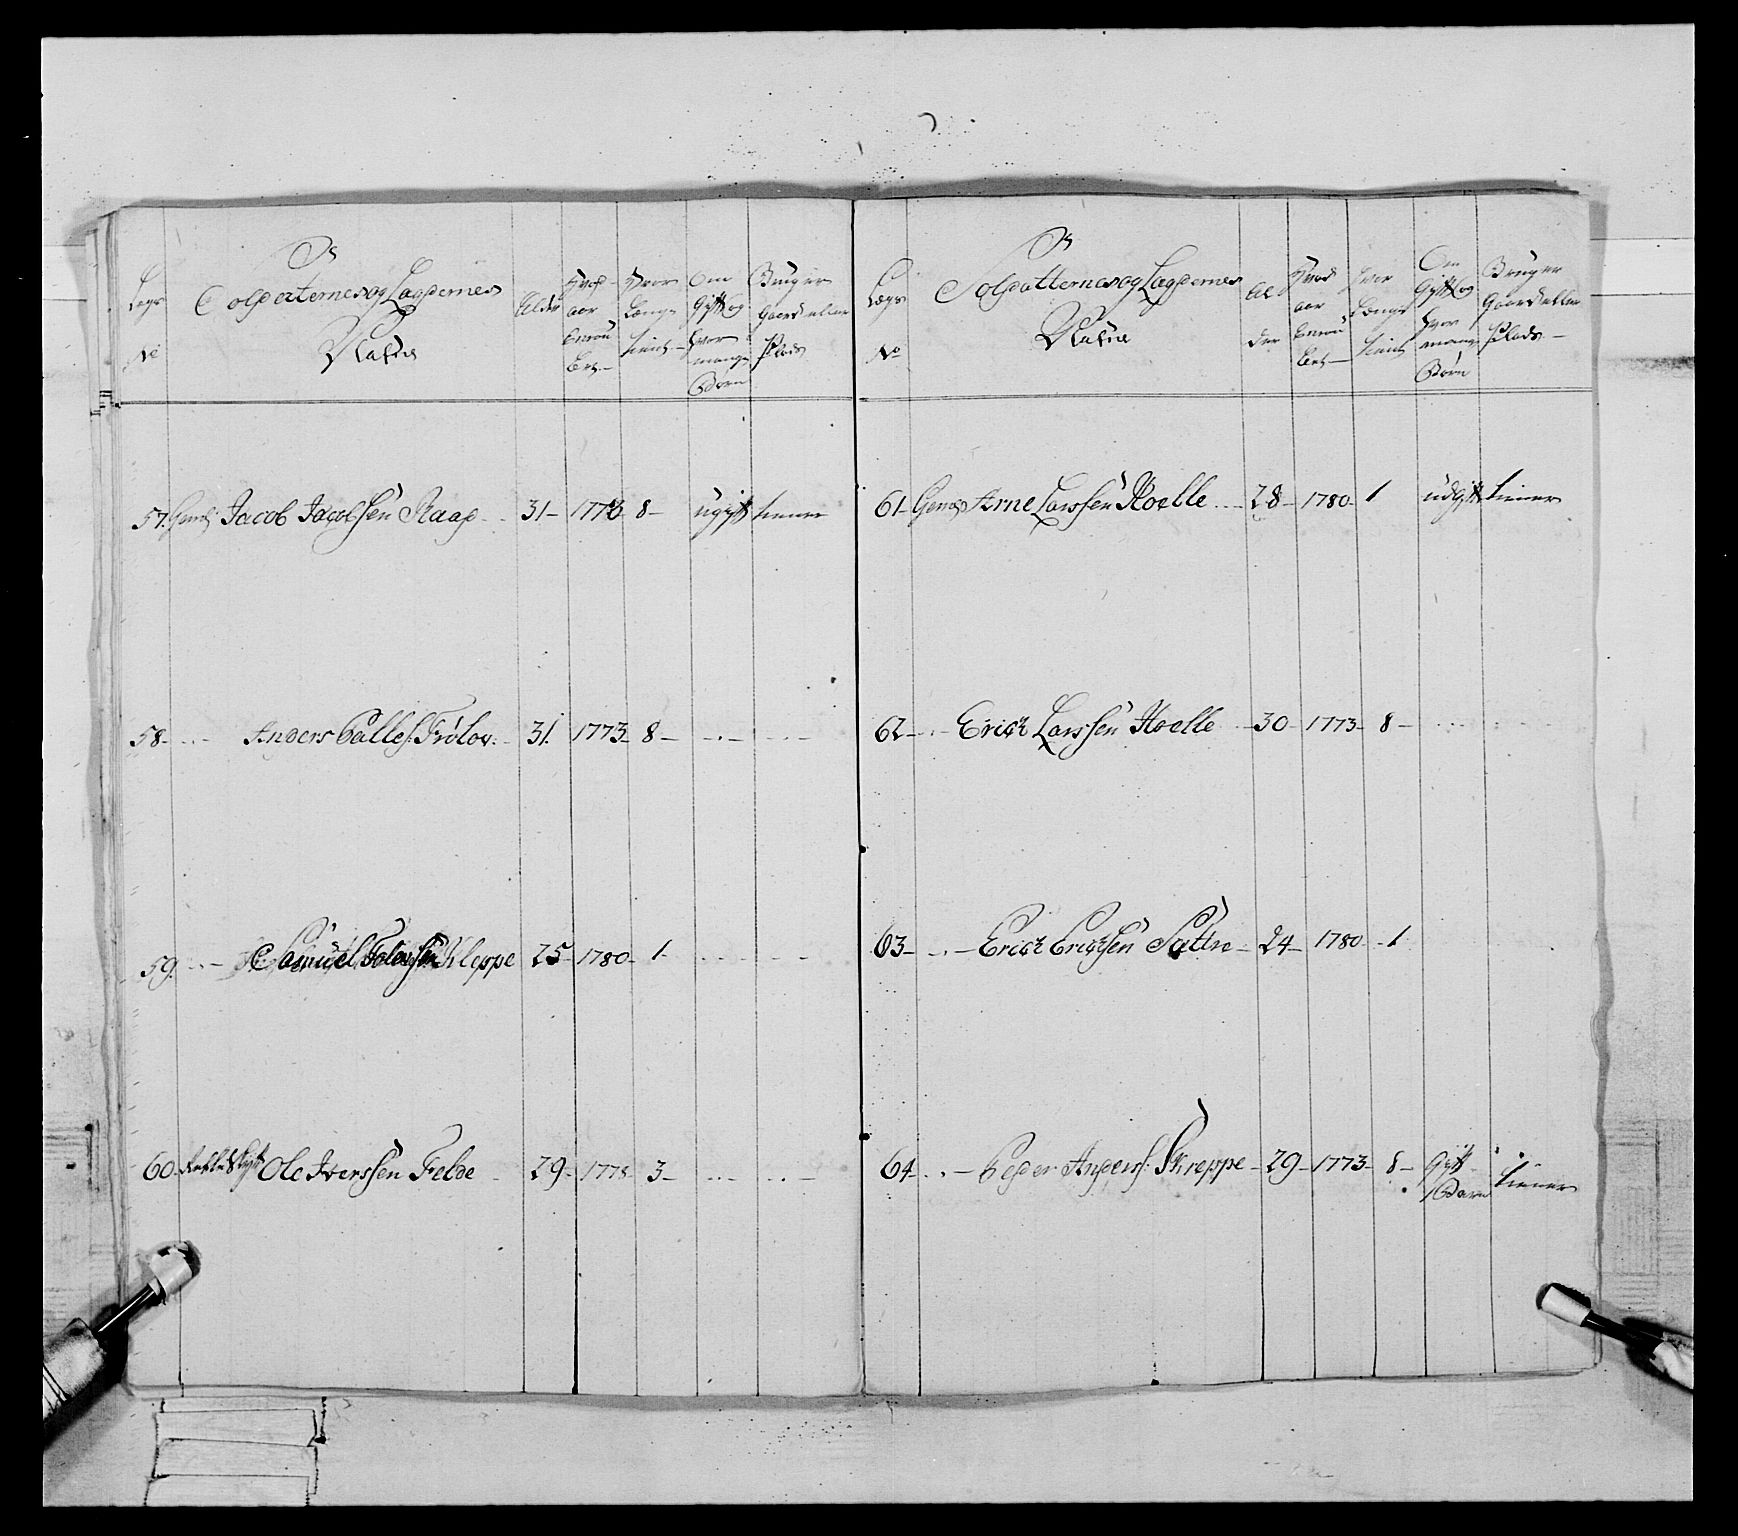 Legs
No
Soldaternes og Lægdernes
Nafne
Alder
Hvad
aar
Enrou
lert
Hvor
længe
tient
Om
Gift og
hvor
mange
Børn
Bruger
Gaard eller
Plads
57. Gemd: Jacob Jacobsen Raap 31 1773 8 ugift tiener
58 Anders Pallesen Frølov 31 1773 8
59 Samuel Kleppe 25 1780 1
60 Ole Iverssen Felde 29 1778 3
Lægs
No
Soldatternes og Lægdernes
Nafne
Al
der
Hvad
aar
Enrou
lert
Hvor
længe
tient
Om
Gift og
hvor
mange
Børn
Bruger
Gaard eller
Plads
61 Gemd Arne Larssen Hoelle 28 1780 1 udgift tiener
62 Erick Larssen Hoelle 30 1773 8
63 Erick Ericksen Sættre 24 1780 1
64 Peder Anders: Skreppe 29 1773 8 Gift
1 Barn tiener